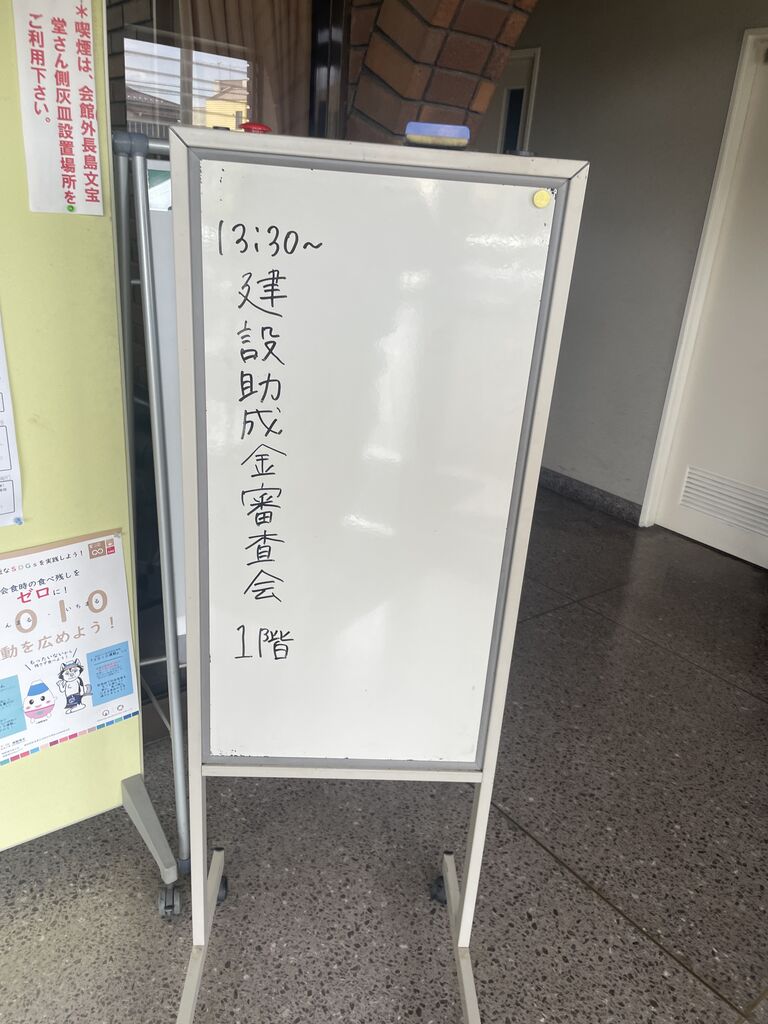 ＊喫煙は、会館外長島文宝
堂さん側灰皿設置場所を
ご利用下さい。
13:30~
建設助成金審査会
1階
なSDGsを実践しよう!
会食時の食べ残しを
ゼロに!
010
動を広めよう!
もったいないから